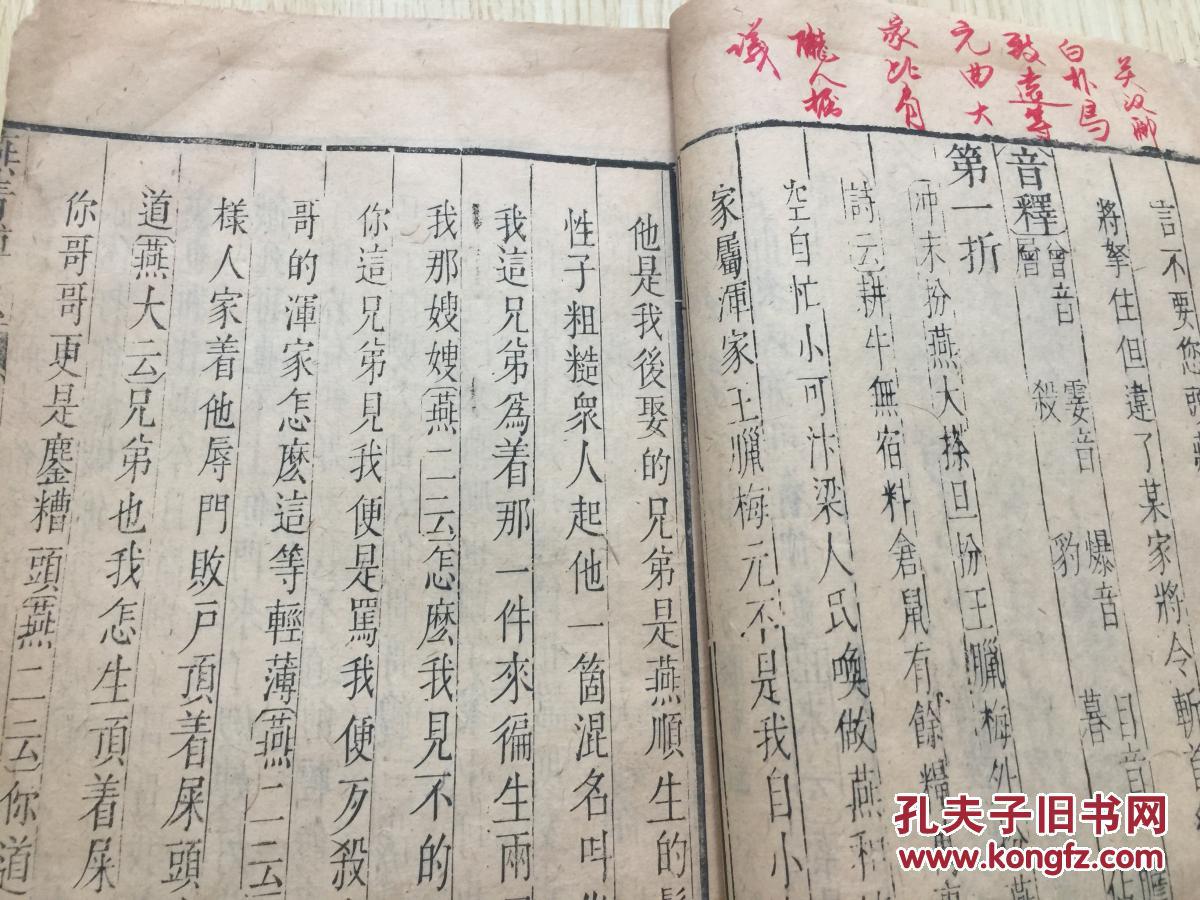 言不要您
將拏住但違了某家將令斬首
音釋
層音曾
殺
霎音
豹
爆音
暮
目音
第一折
冲末扮燕大搽旦扮王臘梅外
詩云耕牛無宿料倉鼠有餘糧
空自忙小可汴梁人氏喚做燕和
家屬渾家王臘梅元不是我自小
他是我後娶的兄弟是燕順生的
性子粗糙衆人起他一箇混名叫
我這兄弟爲着那一件來徧生兩
我那嫂嫂燕二云怎麽我見不的
你這兄弟見我便是罵我便歹殺
哥的渾家怎麽這等輕薄燕二云
樣人家着他辱門敗戸頂着屎頭
道燕大云兄弟也我怎生頂着屎
你哥哥更是鏖糟頭燕二云你道
關漢卿
白朴馬
致遠等
元曲大
家比肩
议
孔夫子旧书网
www.kongfz.com